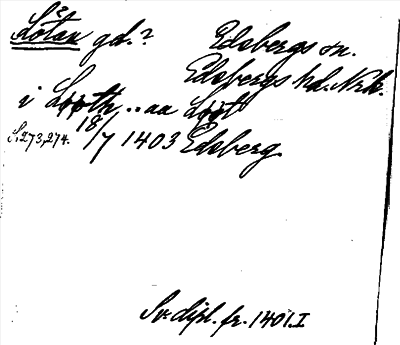 Lötan gd.? Edsbergs sn.
Edsbergs hd. Nrk.
i Lööth .. aa Lööt
S. 273, 274. 18/7 1403 Edsberg
Sv. dipl. fr. 1401. I